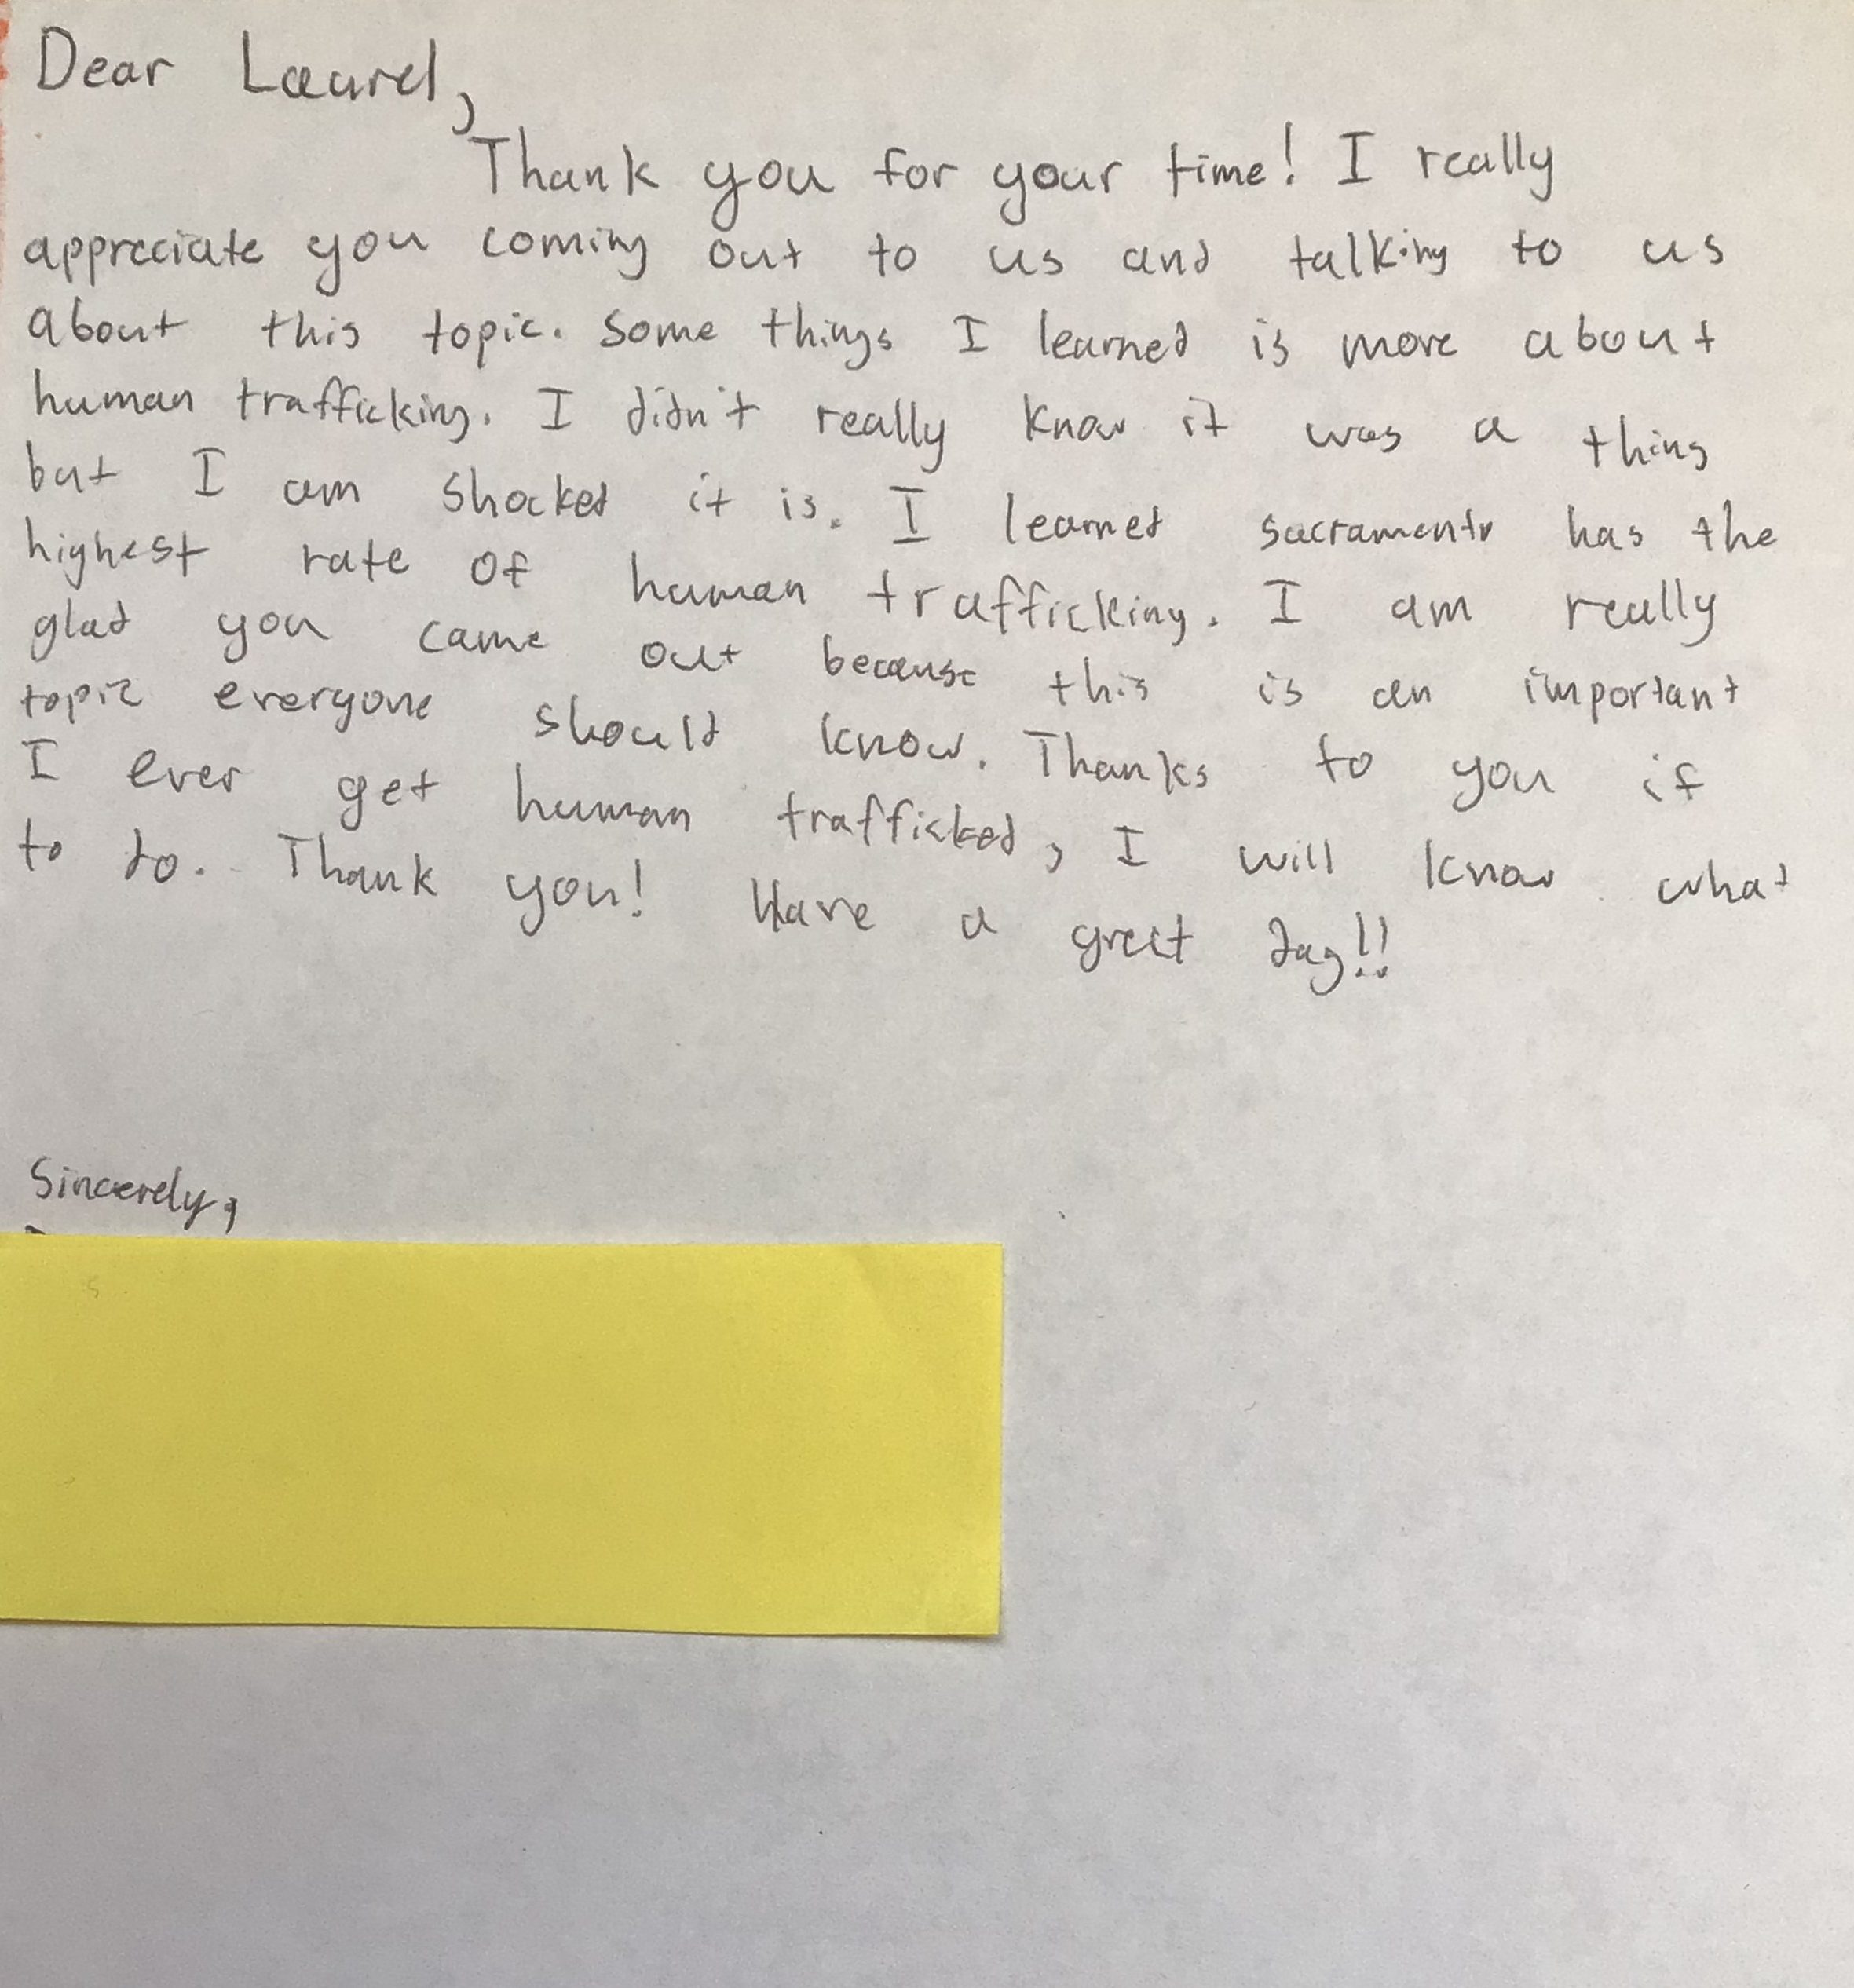 Dear Laurel,
Thank you for your time! I really
appreciate you coming out to us and talking to us
about this topic. Some things I learned is more about
human trafficking. I didn't really know it was a thing
but I am shocked it is. I learned sacramento has the
highest rate of human trafficking. I am really
glad you came out because this is an important
topic everyone should know. Thanks to you if
I ever get human trafficked, I will know what
to do. Thank you! Have a great day!!
Sincerely,